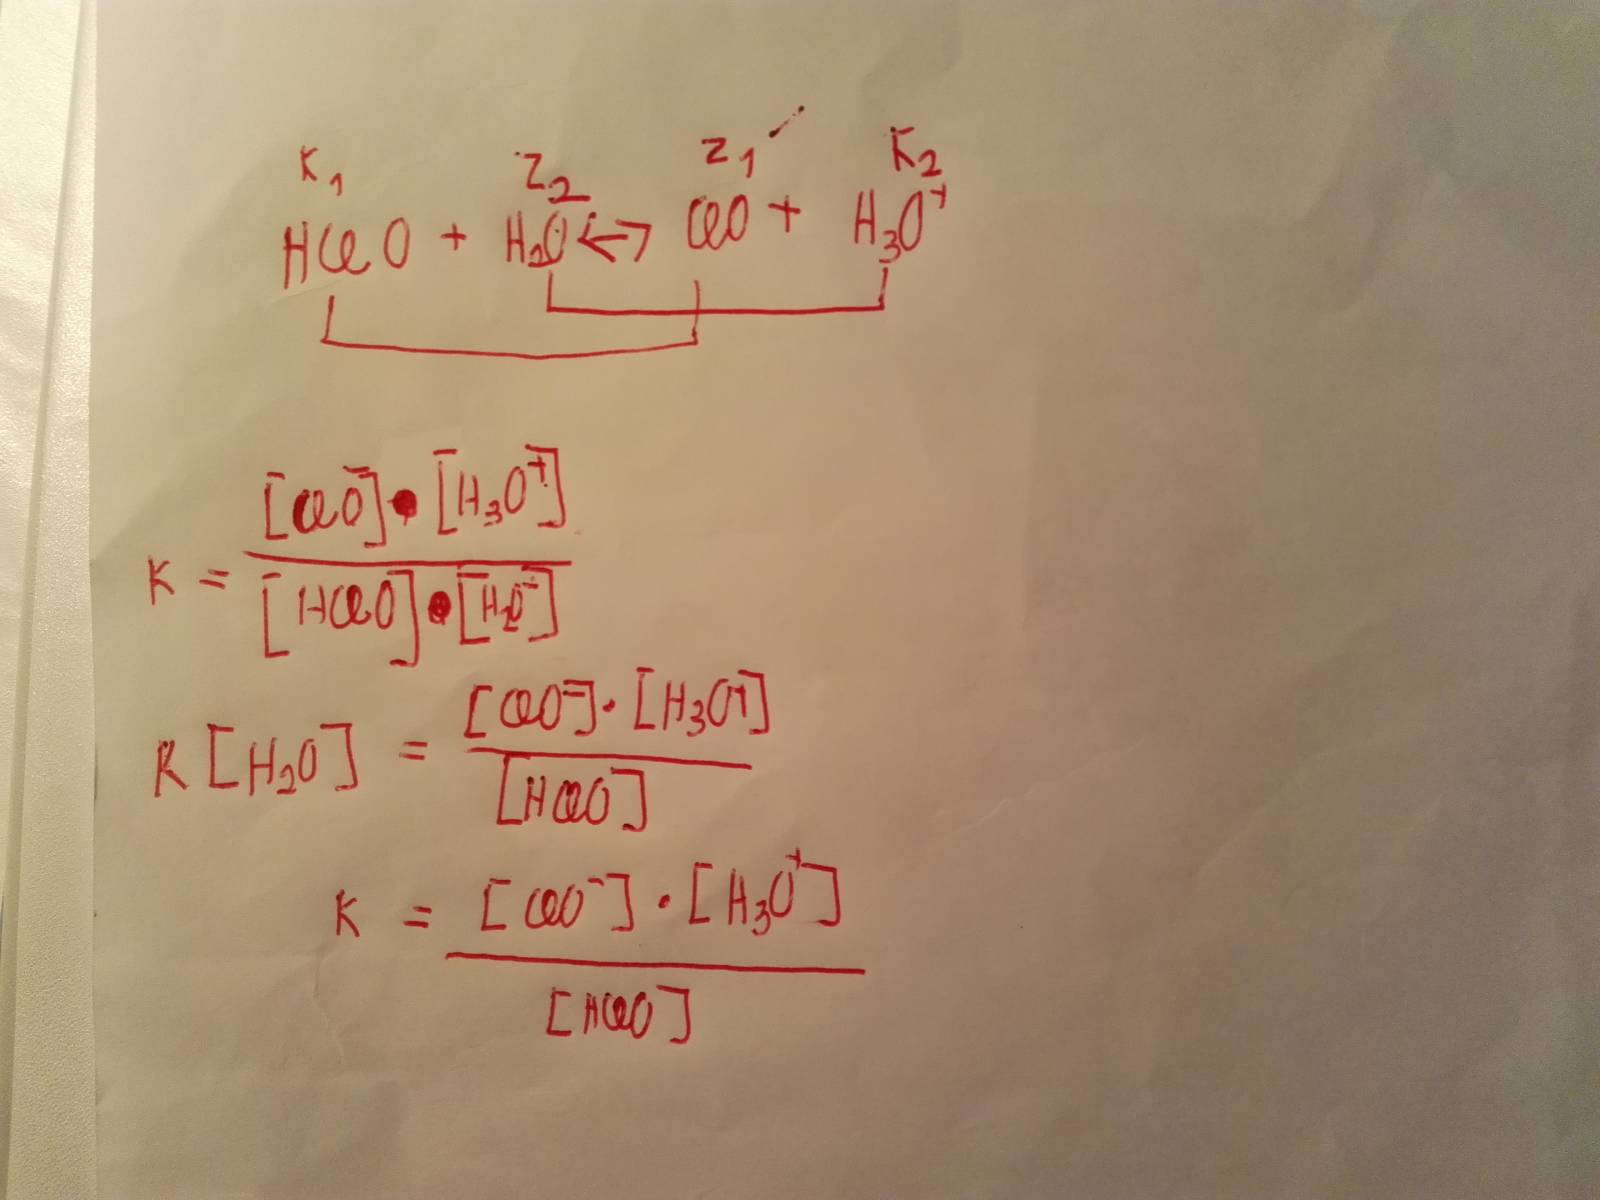 K₁ Z₂ Z₁ K₂
HClO + H₂O ↔ ClO + H₃O⁺
[ClO⁻] • [H₃O⁺]
K =
[HClO] • [H₂O⁻]
[ClO⁻] · [H₃O⁺]
K [H₂O] =
[HClO]
K = [ClO⁻] · [H₃O⁺]
[HClO]